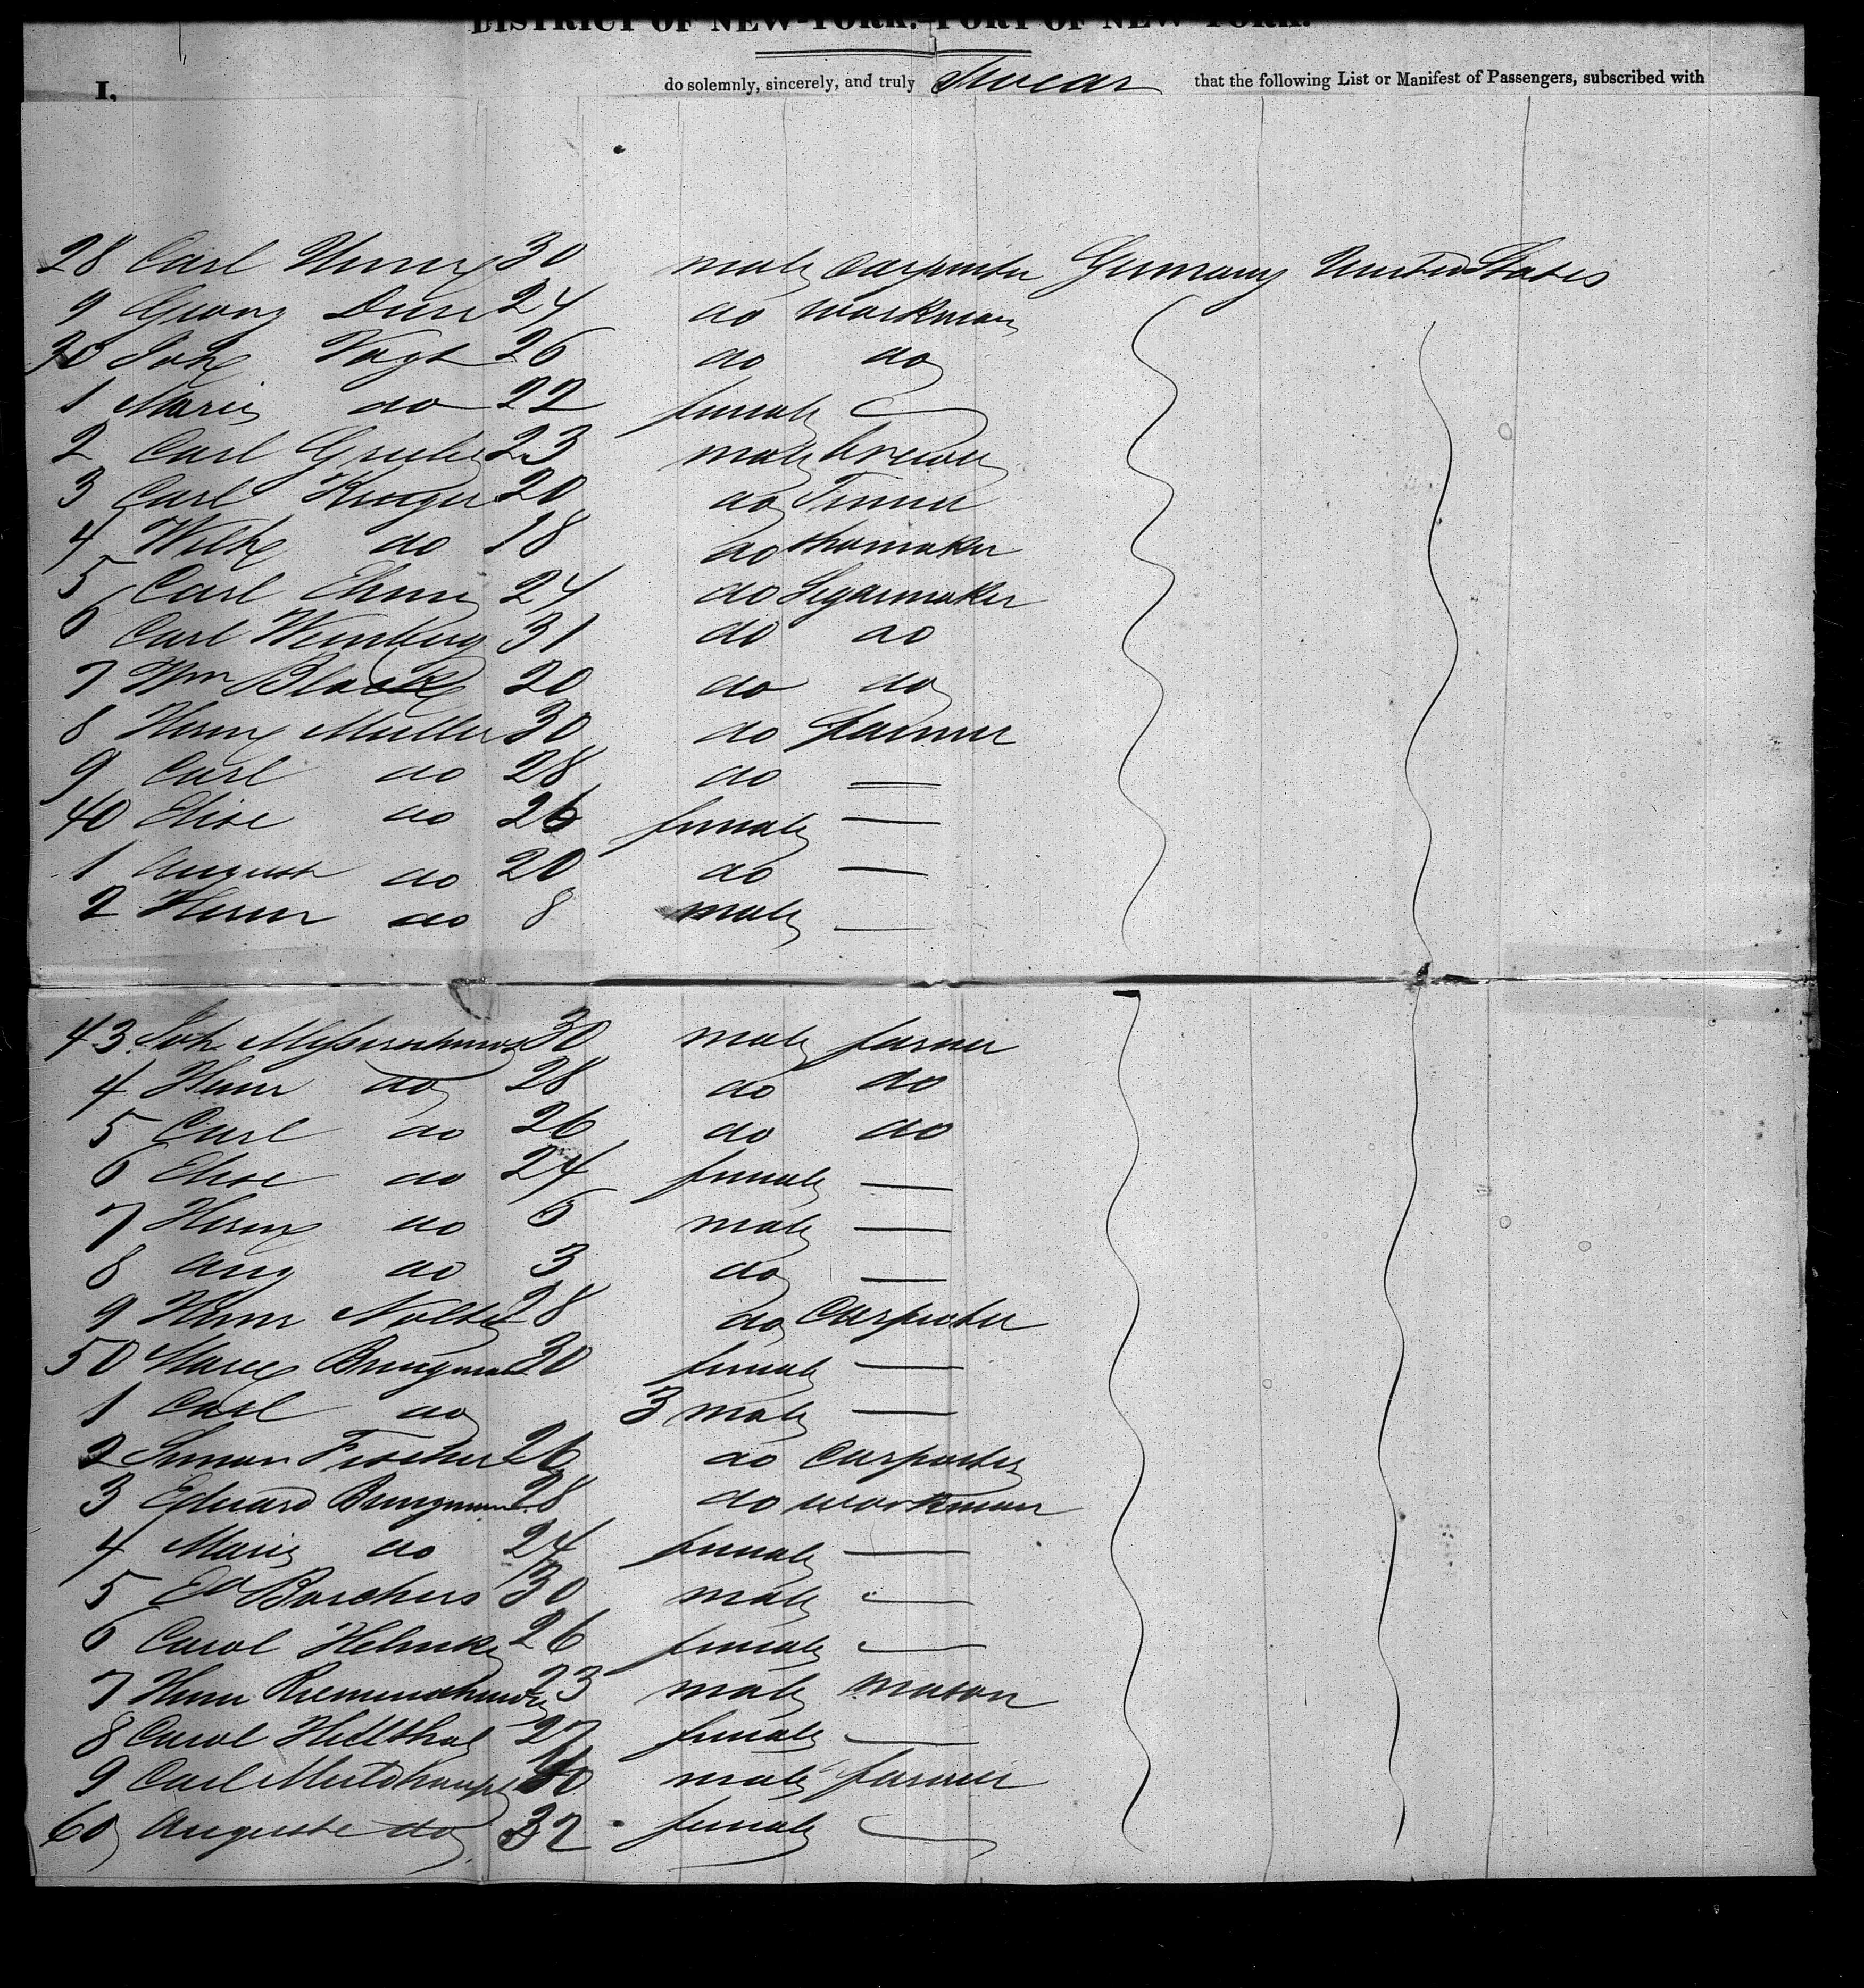 DISTRICT OF NEW-YORK.-PORT OF NEW-YORK.
I, do solemnly, sincerely, and truly Swear that the following List or Manifest of Passengers, subscribed with
28 Carl 30 male Carpenter Germany United States
9 Georg 24 do workman
30 Joh Vogt 26 do do
1 Marie do 22 female
2 Carl 23 male brewer
3 Carl Kruger 20 do
4 Wilh do 18 do shomaker
5 Carl 24 do Segarmaker
6 Carl Weinberg 31 do do
7 Wm 20 do do
8 Herm Muller 30 do farmer
9 Carl do 28 do —
40 Elise do 26 female —
1 August do 20 do —
2 Herm do 8 male —
43 Joh 30 male farmer
4 Henr do 28 do do
5 Carl do 26 do do
6 Elise do 24 female —
7 Herm do 6 male —
8 Aug do 3 do —
9 Herm Nolte 28 do Carpenter
50 Marie 30 female —
1 Carl do 3 male —
2 Simon Fischer 26 do Carpenter
3 Eduard 28 do workman
4 Marie do 24 female —
5 Ed Borchers 30 male —
6 Carol Helmke 26 female —
7 Henr 23 male mason
8 Carol 27 female —
9 Carl 40 male farmer
60 Auguste do 32 female